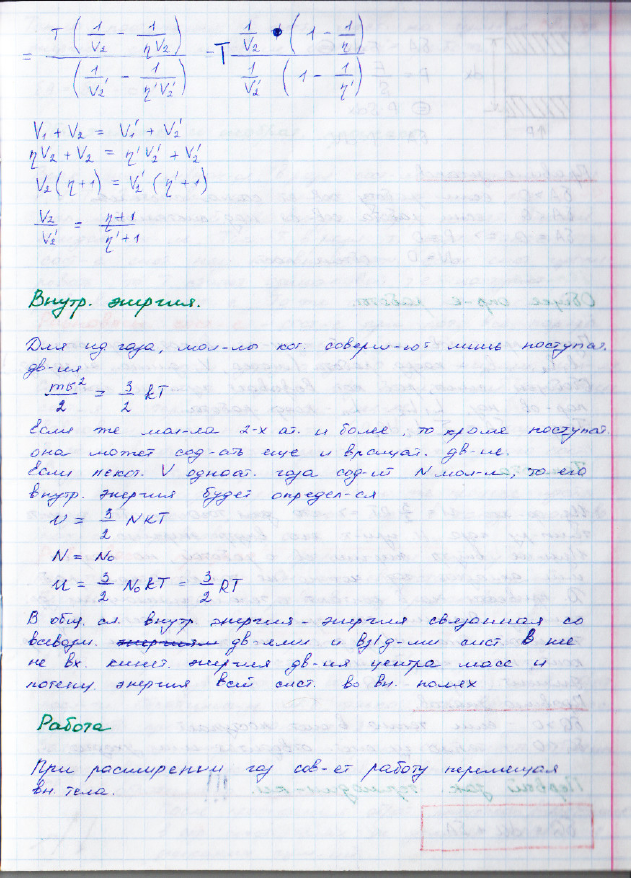 = T ( 1/V₂ - 1/ηV₂ ) / ( 1/V₂' - 1/η'V₂' ) = T 1/V₂ • ( 1 - 1/η ) / 1/V₂' ( 1 - 1/η' )
V₁ + V₂ = V₁' + V₂'
ηV₂ + V₂ = η'V₂' + V₂'
V₂ (η+1) = V₂' (η'+1)
V₂/V₂' = η+1/η'+1
Внутр. энергия.
Для ид газа, мол-лы кот. соверш-ют лишь поступат.
дв-ия
mv²/2 = 3/2 kT
Если же мол-ла 2-х ат. и более, то кроме поступат.
она может сод-ать еще и вращат. дв-ие.
Если некот. V одноат. газа сод-ит N мол-л, то его
внутр. энергия будет определ-ся
U = 3/2 NKT
N = N₀
U = 3/2 N₀kT = 3/2 RT
В общ. сл. внутр. энергия - энергия связанная со
всевозм. дв-ями и вз/д-ми сист. В нее
не вх. кинет. энергия дв-ия центра масс и
потенц. энергия всей сист. во вн. полях
Работа
При расширении газ сов-ет работу перемещая
вн. тела.